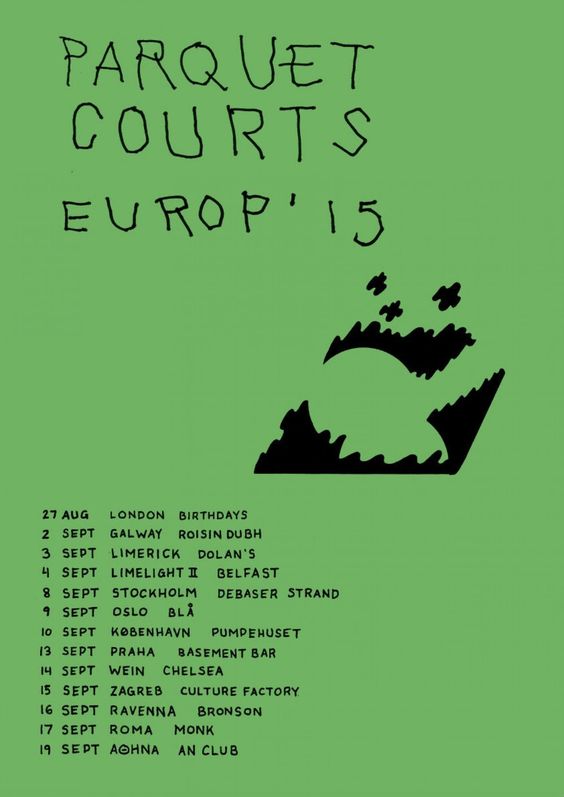 PARQUET
COURTS
EUROP'15
27 AUG LONDON BIRTHDAYS
2 SEPT GALWAY ROISIN DUBH
3 SEPT LIMERICK DOLAN'S
4 SEPT LIMELIGHT II BELFAST
8 SEPT STOCKHOLM DEBASER STRAND
9 SEPT OSLO BLÅ
10 SEPT KØBENHAVN PUMPEHUSET
13 SEPT PRAHA BASEMENT BAR
14 SEPT WEIN CHELSEA
15 SEPT ZAGREB CULTURE FACTORY
16 SEPT RAVENNA BRONSON
17 SEPT ROMA MONK
19 SEPT AΘHNA AN CLUB